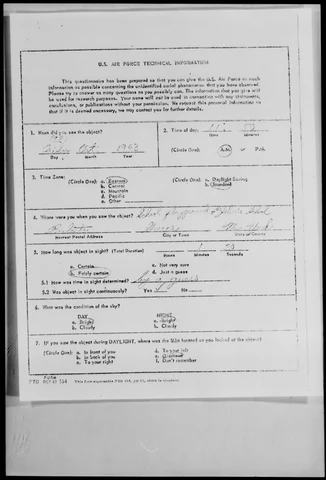 U.S. AIR FORCE TECHNICAL INFORMATION
This questionnaire has been prepared so that you can give the U.S. Air Force as much
information as possible concerning the unidentified aerial phenomenon that you have observed.
Please try to answer as many questions as you possibly can. The information that you give will
be used for research purposes. Your name will not be used in connection with any statements,
conclusions, or publications without your permission. We request this personal information so
that if it is deemed necessary, we may contact you for further details.
1. When did you see the object?
Oct. 1963
Day Month Year
2. Time of day:
Hour Minutes
(Circle One): A.M. or P.M.
3. Time Zone:
(Circle One): a. Eastern
b. Central
c. Mountain
d. Pacific
e. Other
(Circle One): a. Daylight Saving
b. Standard
4. Where were you when you saw the object? School playground School
Nearest Postal Address City or Town State or Country
5. How long was object in sight? (Total Duration)
Hours Minutes Seconds
a. Certain
b. Fairly certain
c. Not very sure
d. Just a guess
5.1 How was time in sight determined?
5.2 Was object in sight continuously? Yes No
6. What was the condition of the sky?
DAY
a. Bright
b. Cloudy
NIGHT
a. Bright
b. Cloudy
7. IF you saw the object during DAYLIGHT, where was the SUN located as you looked at the object?
(Circle One): a. In front of you
b. In back of you
c. To your right
d. To your left
e. Overhead
f. Don't remember
FORM
FTD OCT 62 164